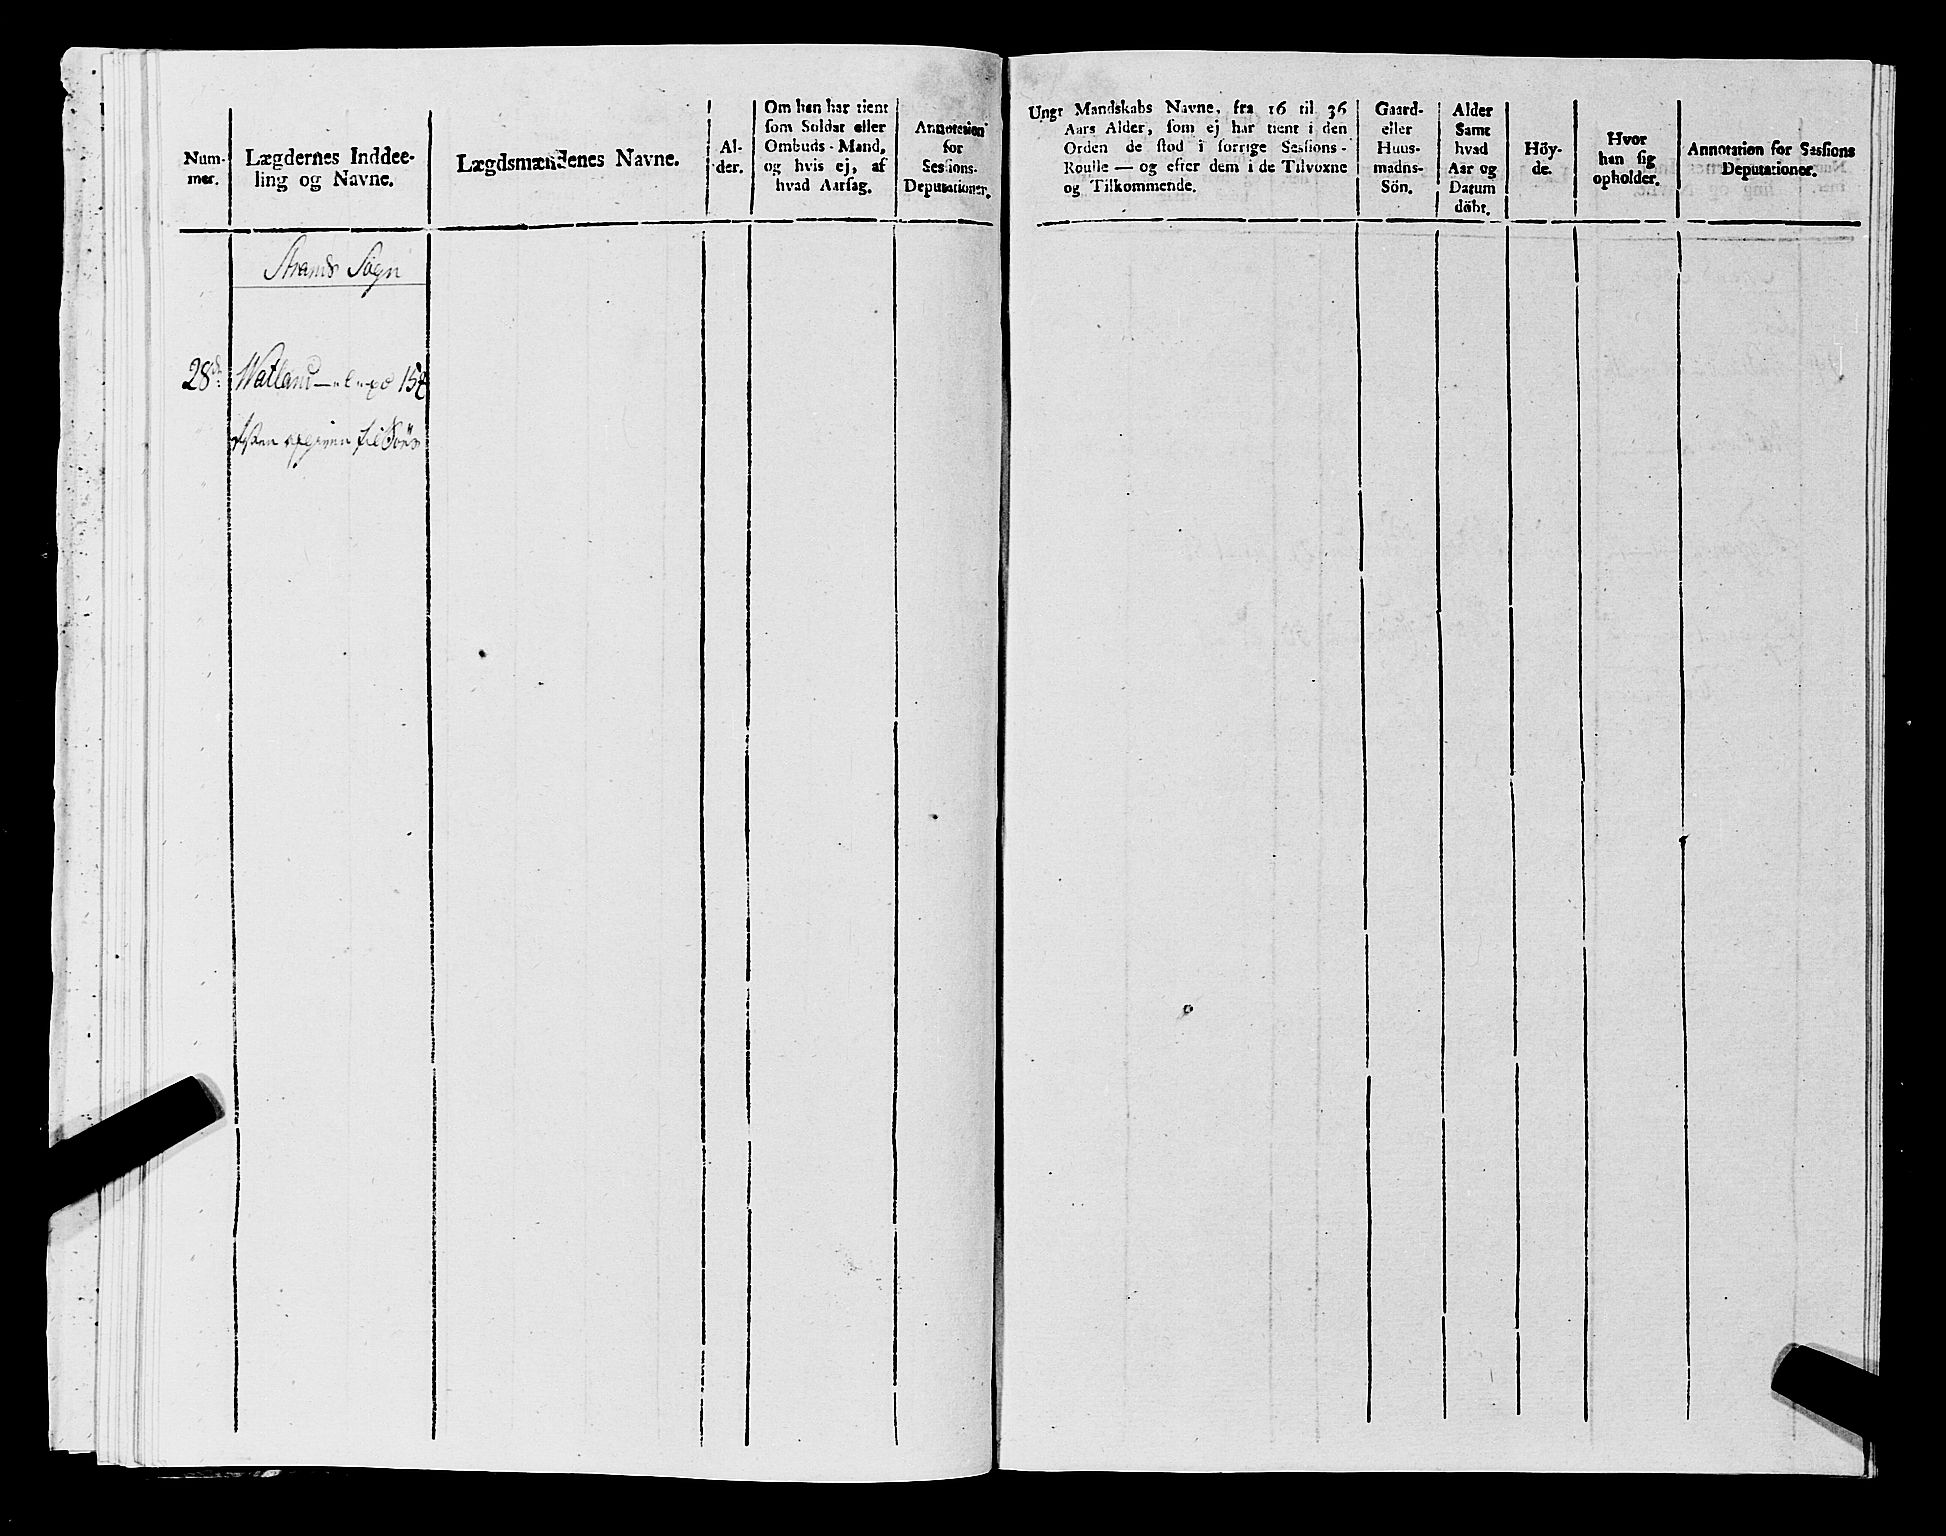 Num-
mer.
Lægdernes Inddee-
ling og Navne.
Lægdsmændenes Navne.
Al-
der.
Om han har tient
som Soldat eller
Ombuds-Mand,
og hvis ej, af
hvad Aarsag.
Annotation
for
Sessions-
Deputationer.
Strands Sogn
28de
Watland
til
Ungt Mandskabs Navne, fra 16 til 36
Aars Alder, som ej har tient i den
Orden de stod i forrige Sessions-
Roulle — og efter dem i de Tilvoxne
og Tilkommende.
Gaard-
eller
Huus-
mands-
Sön.
Alder
Samt
hvad
Aar og
Datum
döbt.
Höy-
de.
Hvor
han sig
opholder.
Annotation for Sessions
Deputationer.